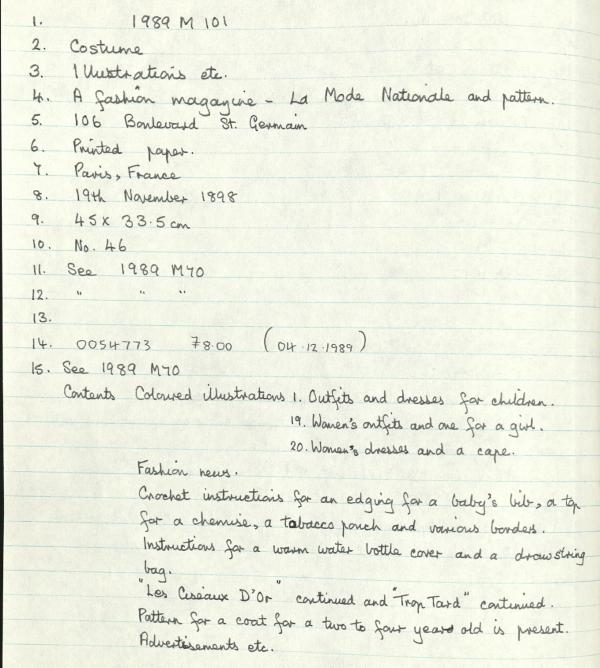 1. 1989 M 101
2. Costume
3. Illustrations etc.
4. A fashion magazine - La Mode Nationale and pattern.
5. 106 Boulevard St. Germain
6. Printed paper.
7. Paris, France
8. 19th November 1898
9. 45 x 33.5 cm
10. No. 46
11. See 1989 M70
12. " " "
13.
14. 0054773 78.00 (04.12.1989)
15. See 1989 M70
Contents Coloured illustrations 1. Outfits and dresses for children.
19. Women's outfits and one for a girl.
20. Women's dresses and a cape.
Fashion news.
Crochet instructions for an edging for a baby's bib, a top
for a chemise, a tobacco pouch and various borders.
Instructions for a warm water bottle cover and a drawstring
bag.
"Les Ciseaux D'Or" continued and "Trop Tard" continued.
Pattern for a coat for a two to four year old is present.
Advertisements etc.